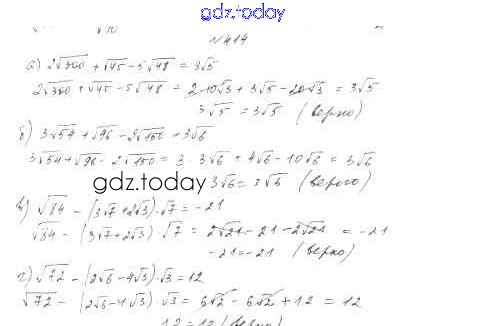 gdz.today
№414
а) 2√300 + √45 - 5√48 = 3√5
2√300 + √45 - 5√48 = 2·10√3 + 3√5 - 20√3 = 3√5
3√5 = 3√5 (верно)
б) 3√54 + √96 - 2√150 = 3√6
3√54 + √96 - 2√150 = 3·3√6 + 4√6 - 10√6 = 3√6
gdz.today
3√6 = 3√6 (верно)
в) √84 - (3√7 + 2√3)·√7 = -21
√84 - (3√7 + 2√3)·√7 = 2√21 - 21 - 2√21 = -21
-21 = -21 (верно)
г) √72 - (2√6 - 4√3)·√3 = 12
√72 - (2√6 - 4√3)·√3 = 6√2 - 6√2 + 12 = 12
12 = 12 (верно)